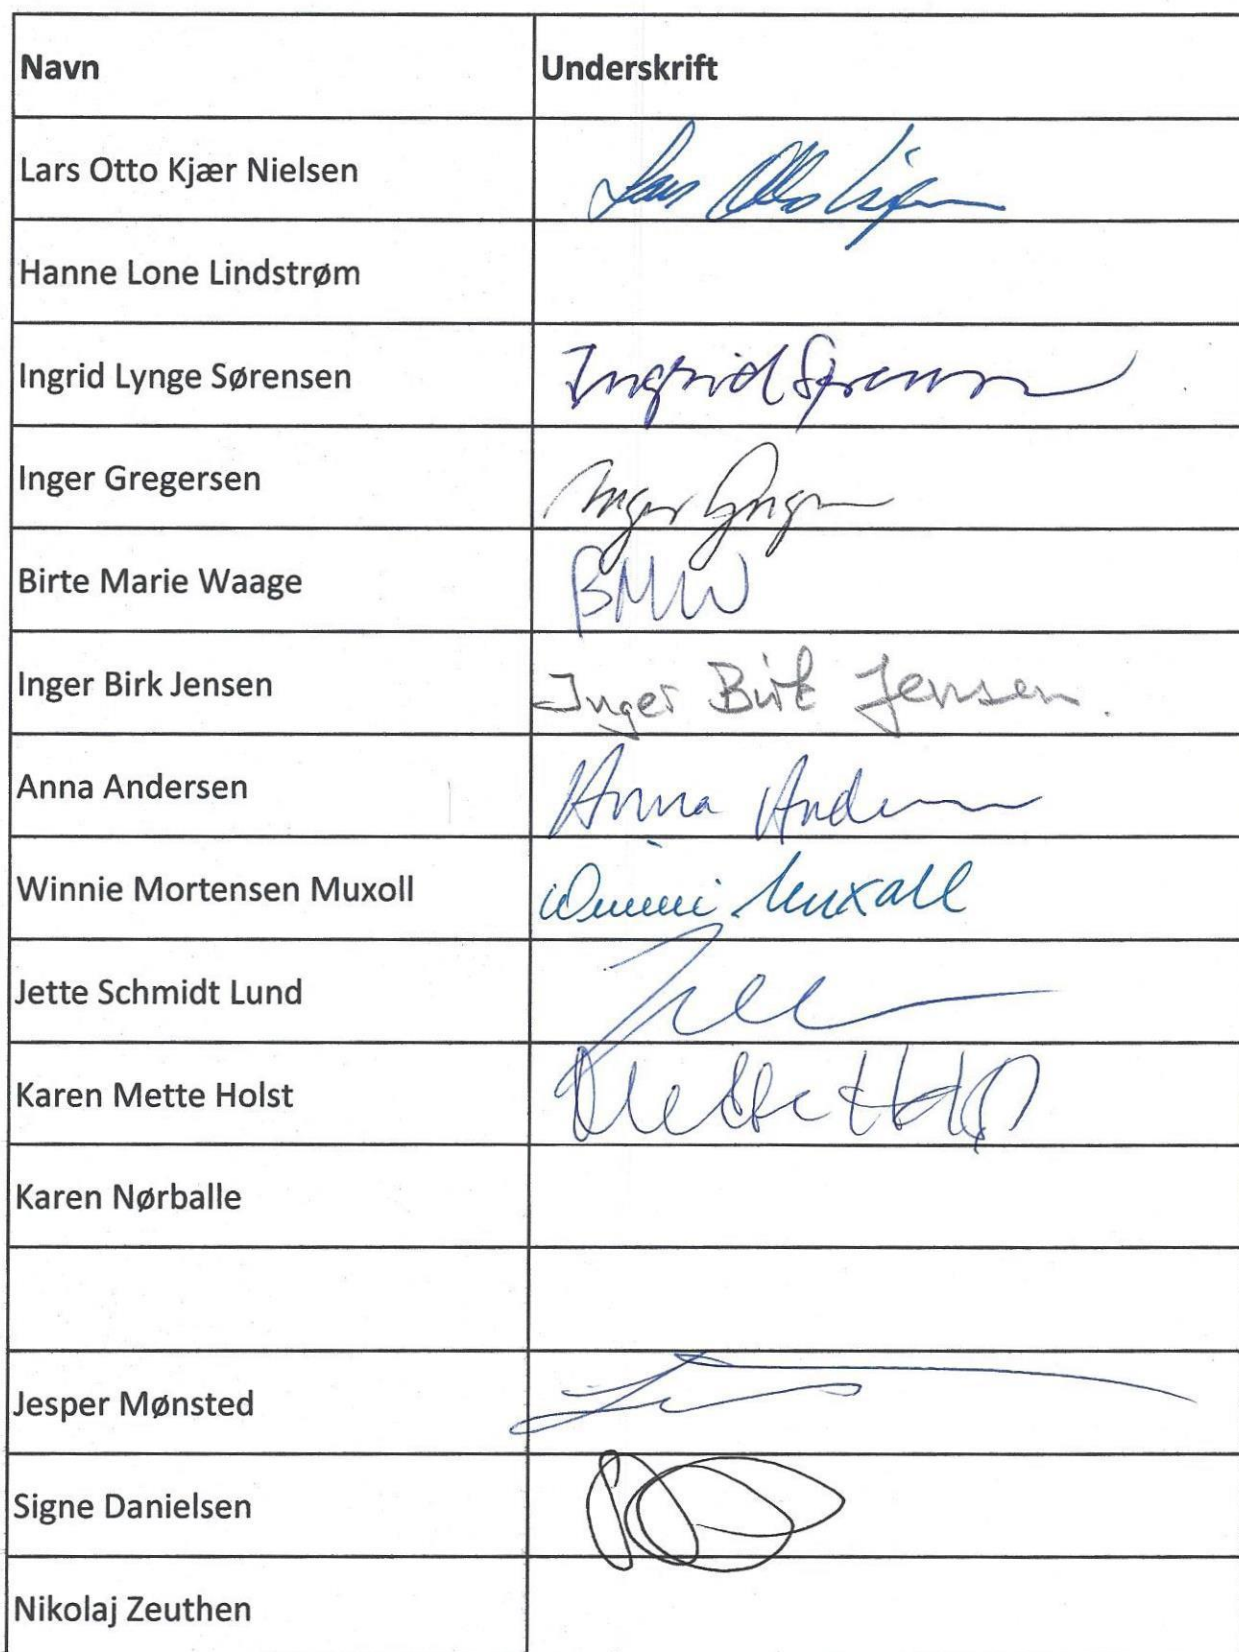 Navn Underskrift
Lars Otto Kjær Nielsen Lars Otto Kjær
Hanne Lone Lindstrøm
Ingrid Lynge Sørensen Ingrid Sørensen
Inger Gregersen Inger
Birte Marie Waage BMW
Inger Birk Jensen Inger Birk Jensen.
Anna Andersen Anna
Winnie Mortensen Muxoll Winnie Muxoll
Jette Schmidt Lund
Karen Mette Holst Mette Holst
Karen Nørballe
Jesper Mønsted
Signe Danielsen
Nikolaj Zeuthen